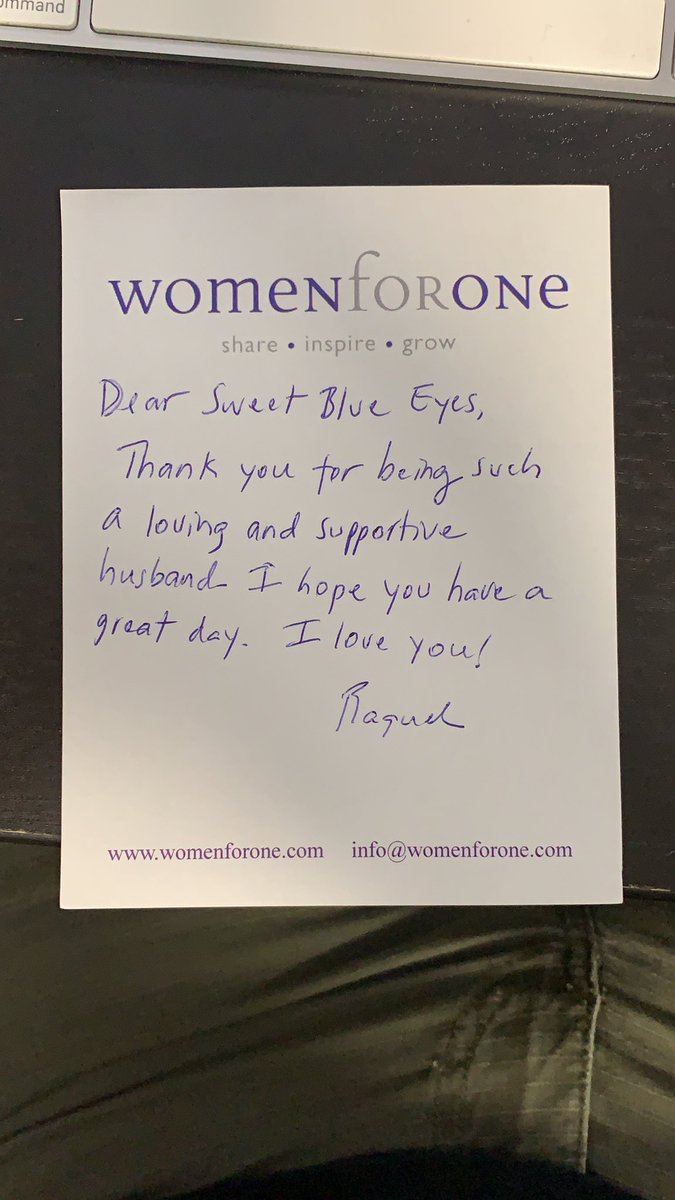 ommand
womenforone
share • inspire • grow
Dear Sweet Blue Eyes,
Thank you for being such
a loving and supportive
husband. I hope you have a
great day. I love you!
Raquel
www.womenforone.com info@womenforone.com